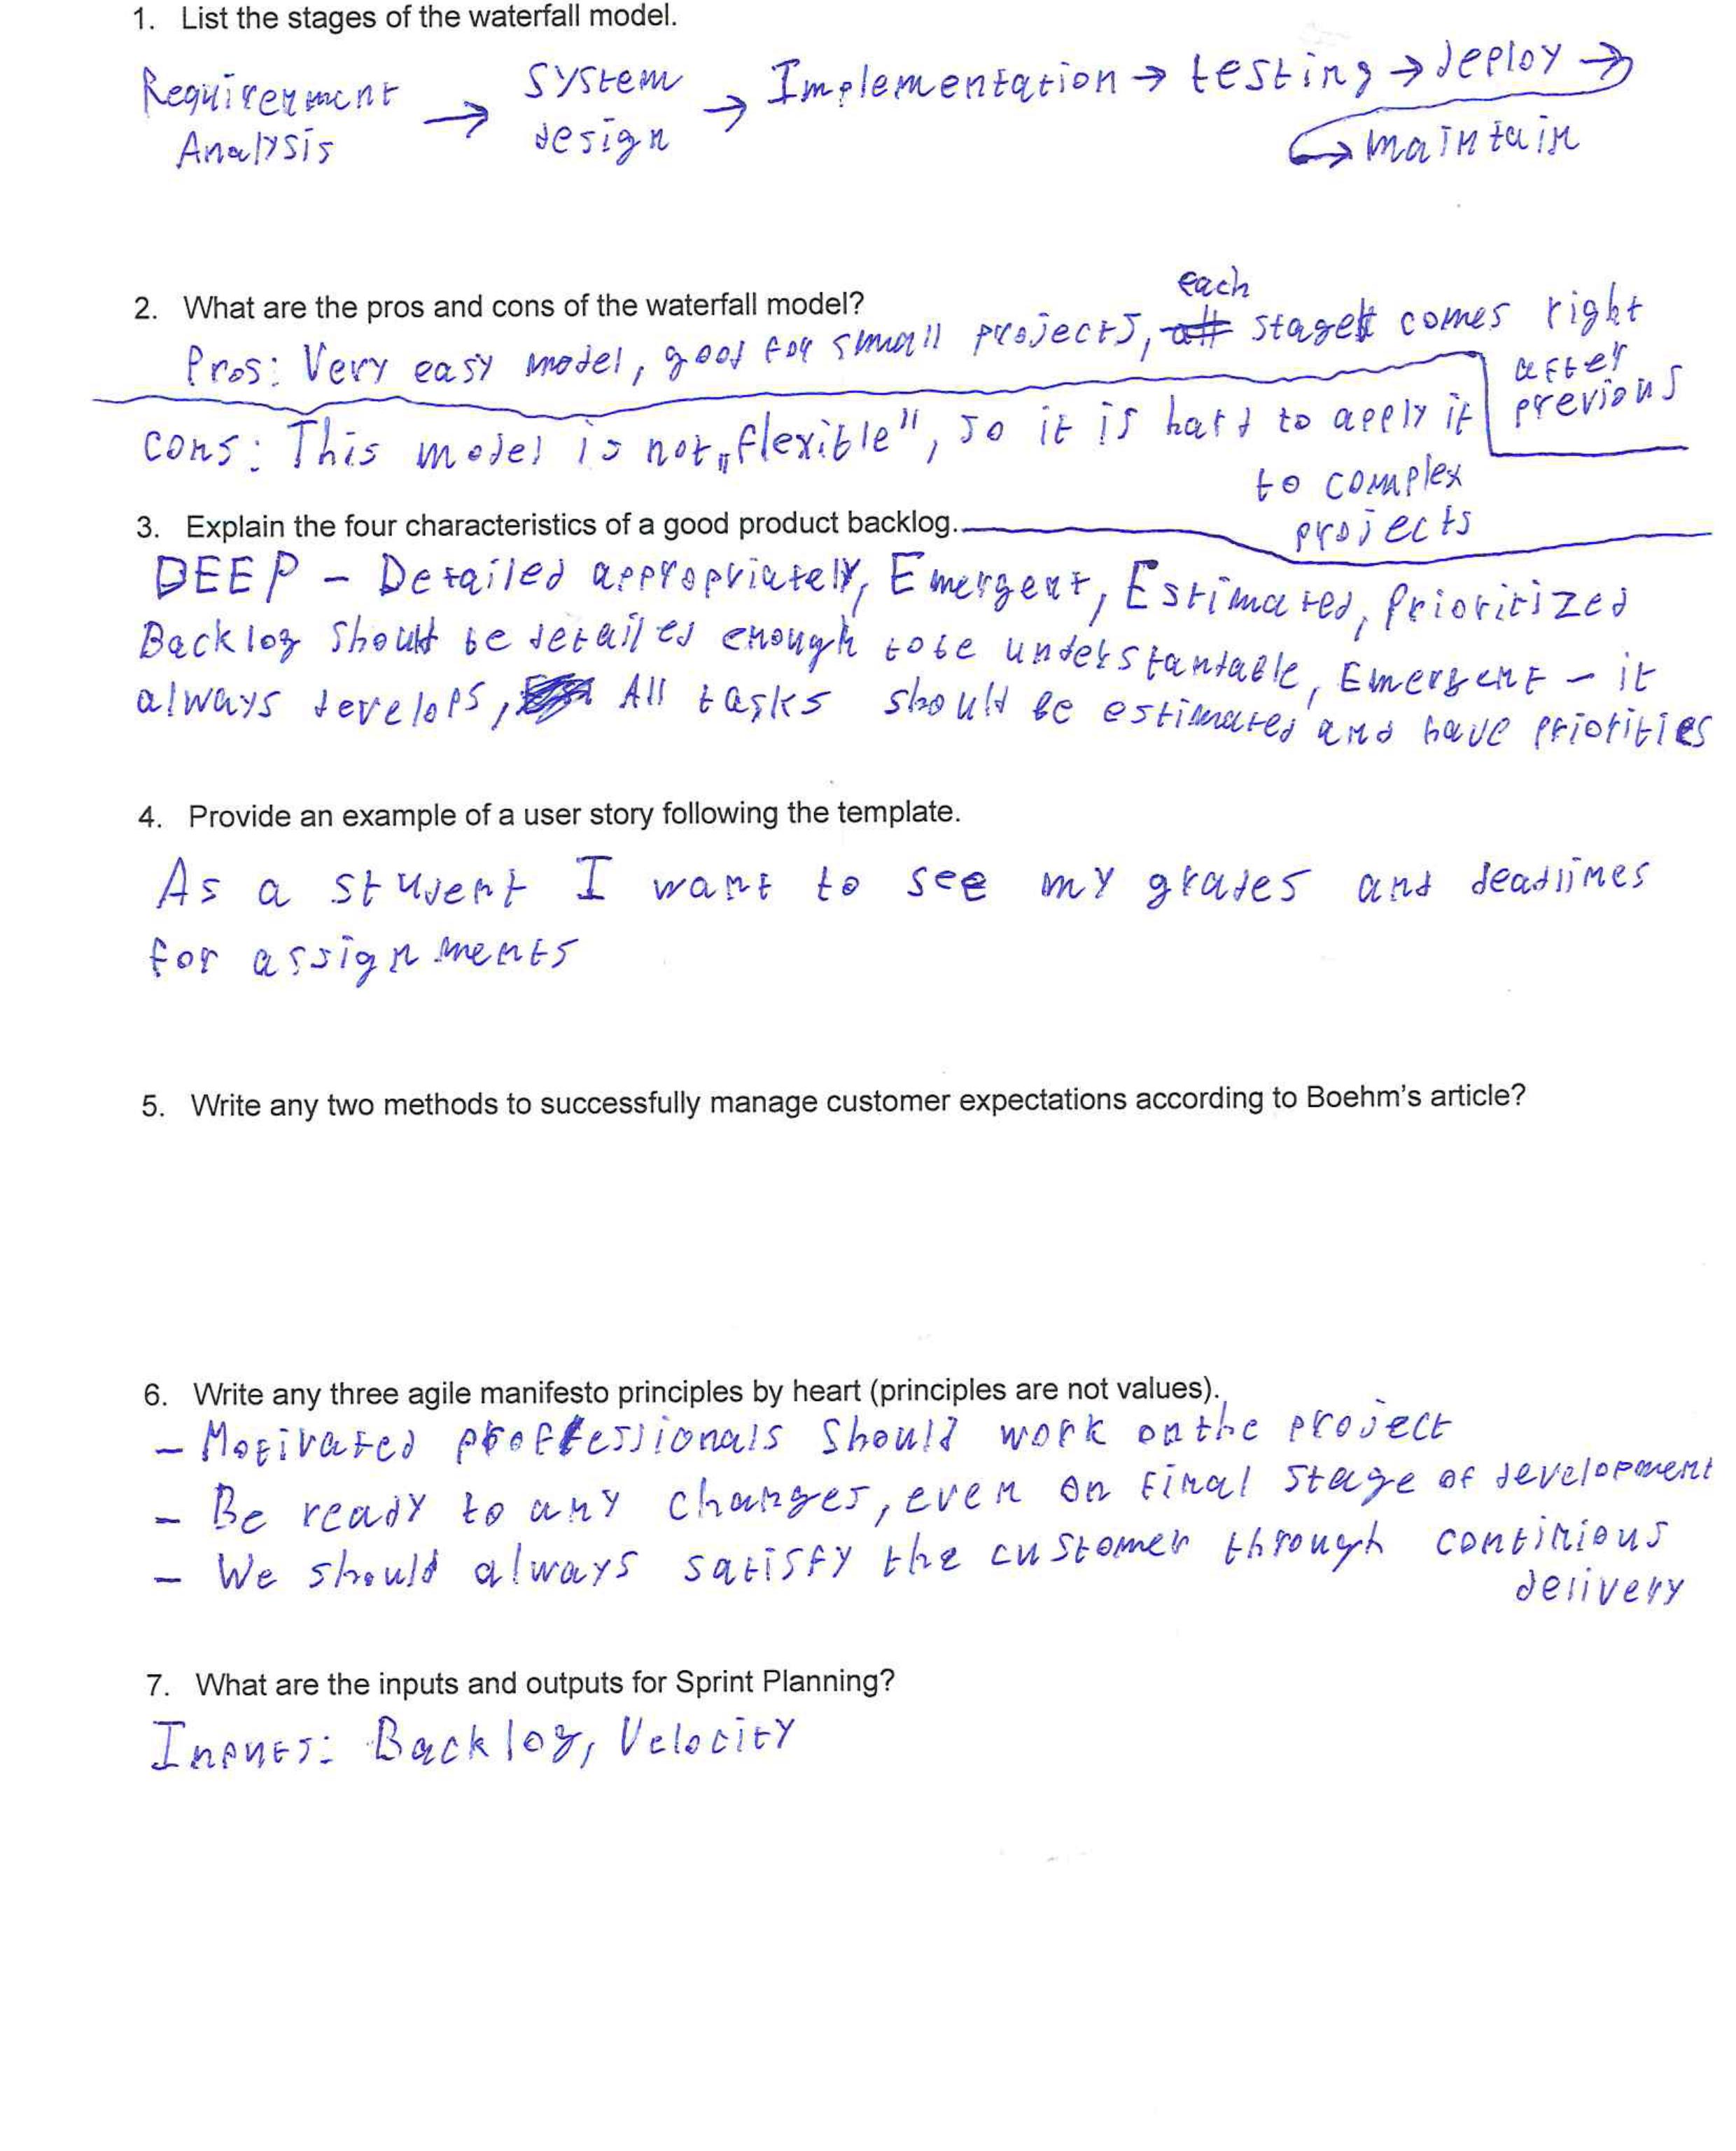 1. List the stages of the waterfall model.
Requirenment Analysis → System design → Implementation → testing → deploy →
→ maintain
2. What are the pros and cons of the waterfall model?
Pros: Very easy model, good for small projects, each stage comes right
after
previous
cons: This model is not „flexible", so it is hard to apply it
to complex
projects
3. Explain the four characteristics of a good product backlog.
DEEP – Detailed appropriately, Emergent, Estimated, Prioritized
Backlog should be detailed enough to be understandable, Emergent – it
always develops, All tasks should be estimated and have priorities
4. Provide an example of a user story following the template.
As a student I want to see my grades and deadlines
for assignments
5. Write any two methods to successfully manage customer expectations according to Boehm's article?
6. Write any three agile manifesto principles by heart (principles are not values).
– Motivated professionals should work on the project
– Be ready to any changes, even on final stage of development
– We should always satisfy the customer through continious
delivery
7. What are the inputs and outputs for Sprint Planning?
Inputs: Backlog, Velocity